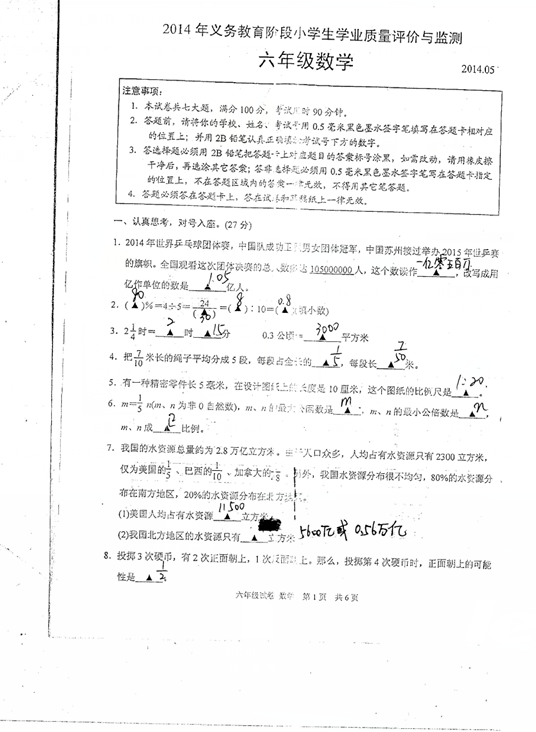 2014年义务教育阶段小学生学业质量评价与监测
六年级数学
2014.05
注意事项：
1. 本试卷共七大题，满分100分，考试用时90分钟。
2. 答题前，请将你的学校、姓名、考试号用0.5毫米黑色墨水签字笔填写在答题卡相对应
的位置上；并用2B铅笔认真正确填涂考试号下方的数字。
3. 答选择题必须用2B铅笔把答题卡上对应题目的答案标号涂黑，如需改动，请用橡皮擦
干净后，再选涂其它答案；答非选择题必须用0.5毫米黑色墨水签字笔写在答题卡指定
的位置上，不在答题区域内的答案一律无效，不得用其它笔答题。
4. 答题必须答在答题卡上，答在试卷和草稿纸上一律无效。
一、认真思考，对号入座。(27分)
1. 2014年世界乒乓球团体赛，中国队成功卫冕男女团体冠军，中国苏州接过举办2015年世乒赛
的旗帜。全国观看这次团体决赛的总人数约达105000000人，这个数读作 一亿零五百万 ▲ ，改写成用
亿作单位的数是 1.05 ▲ 亿人。
2. ( 80 ▲ )%=4÷5=24/( ▲ 30 )=( 8 ▲ )：10=( 0.8 ▲ )(填小数)
3. 2 1/4时= 2 ▲ 时 ▲ 15 分 0.3公顷= 3000 ▲ 平方米
4. 把7/10米长的绳子平均分成5段，每段占全长的 ▲ 1/5 ，每段长 ▲ 7/50 米。
5. 有一种精密零件长5毫米，在设计图纸上的长度是10厘米，这个图纸的比例尺是 1:20 ▲ 。
6. m=1/5 n(m、n为非0自然数)，m、n的最大公因数是 m ▲ ，m、n的最小公倍数是 ▲ n ，
m、n成 正 ▲ 比例。
7. 我国的水资源总量约为2.8万亿立方米。由于人口众多，人均占有水资源只有2300立方米，
仅为美国的1/5、巴西的1/10、加拿大的 /8 。另外，我国水资源分布很不均匀，80%的水资源分
布在南方地区，20%的水资源分布在北方地区。
(1)美国人均占有水资源 11500 ▲ 立方米。
(2)我国北方地区的水资源只有 ▲ 立方米 5600亿或 0.56万亿
8. 投掷3次硬币，有2次正面朝上，1次反面朝上。那么，投掷第4次硬币时，正面朝上的可能
性是 ▲ 1/2 。
六年级试卷 数学 第1页 共6页